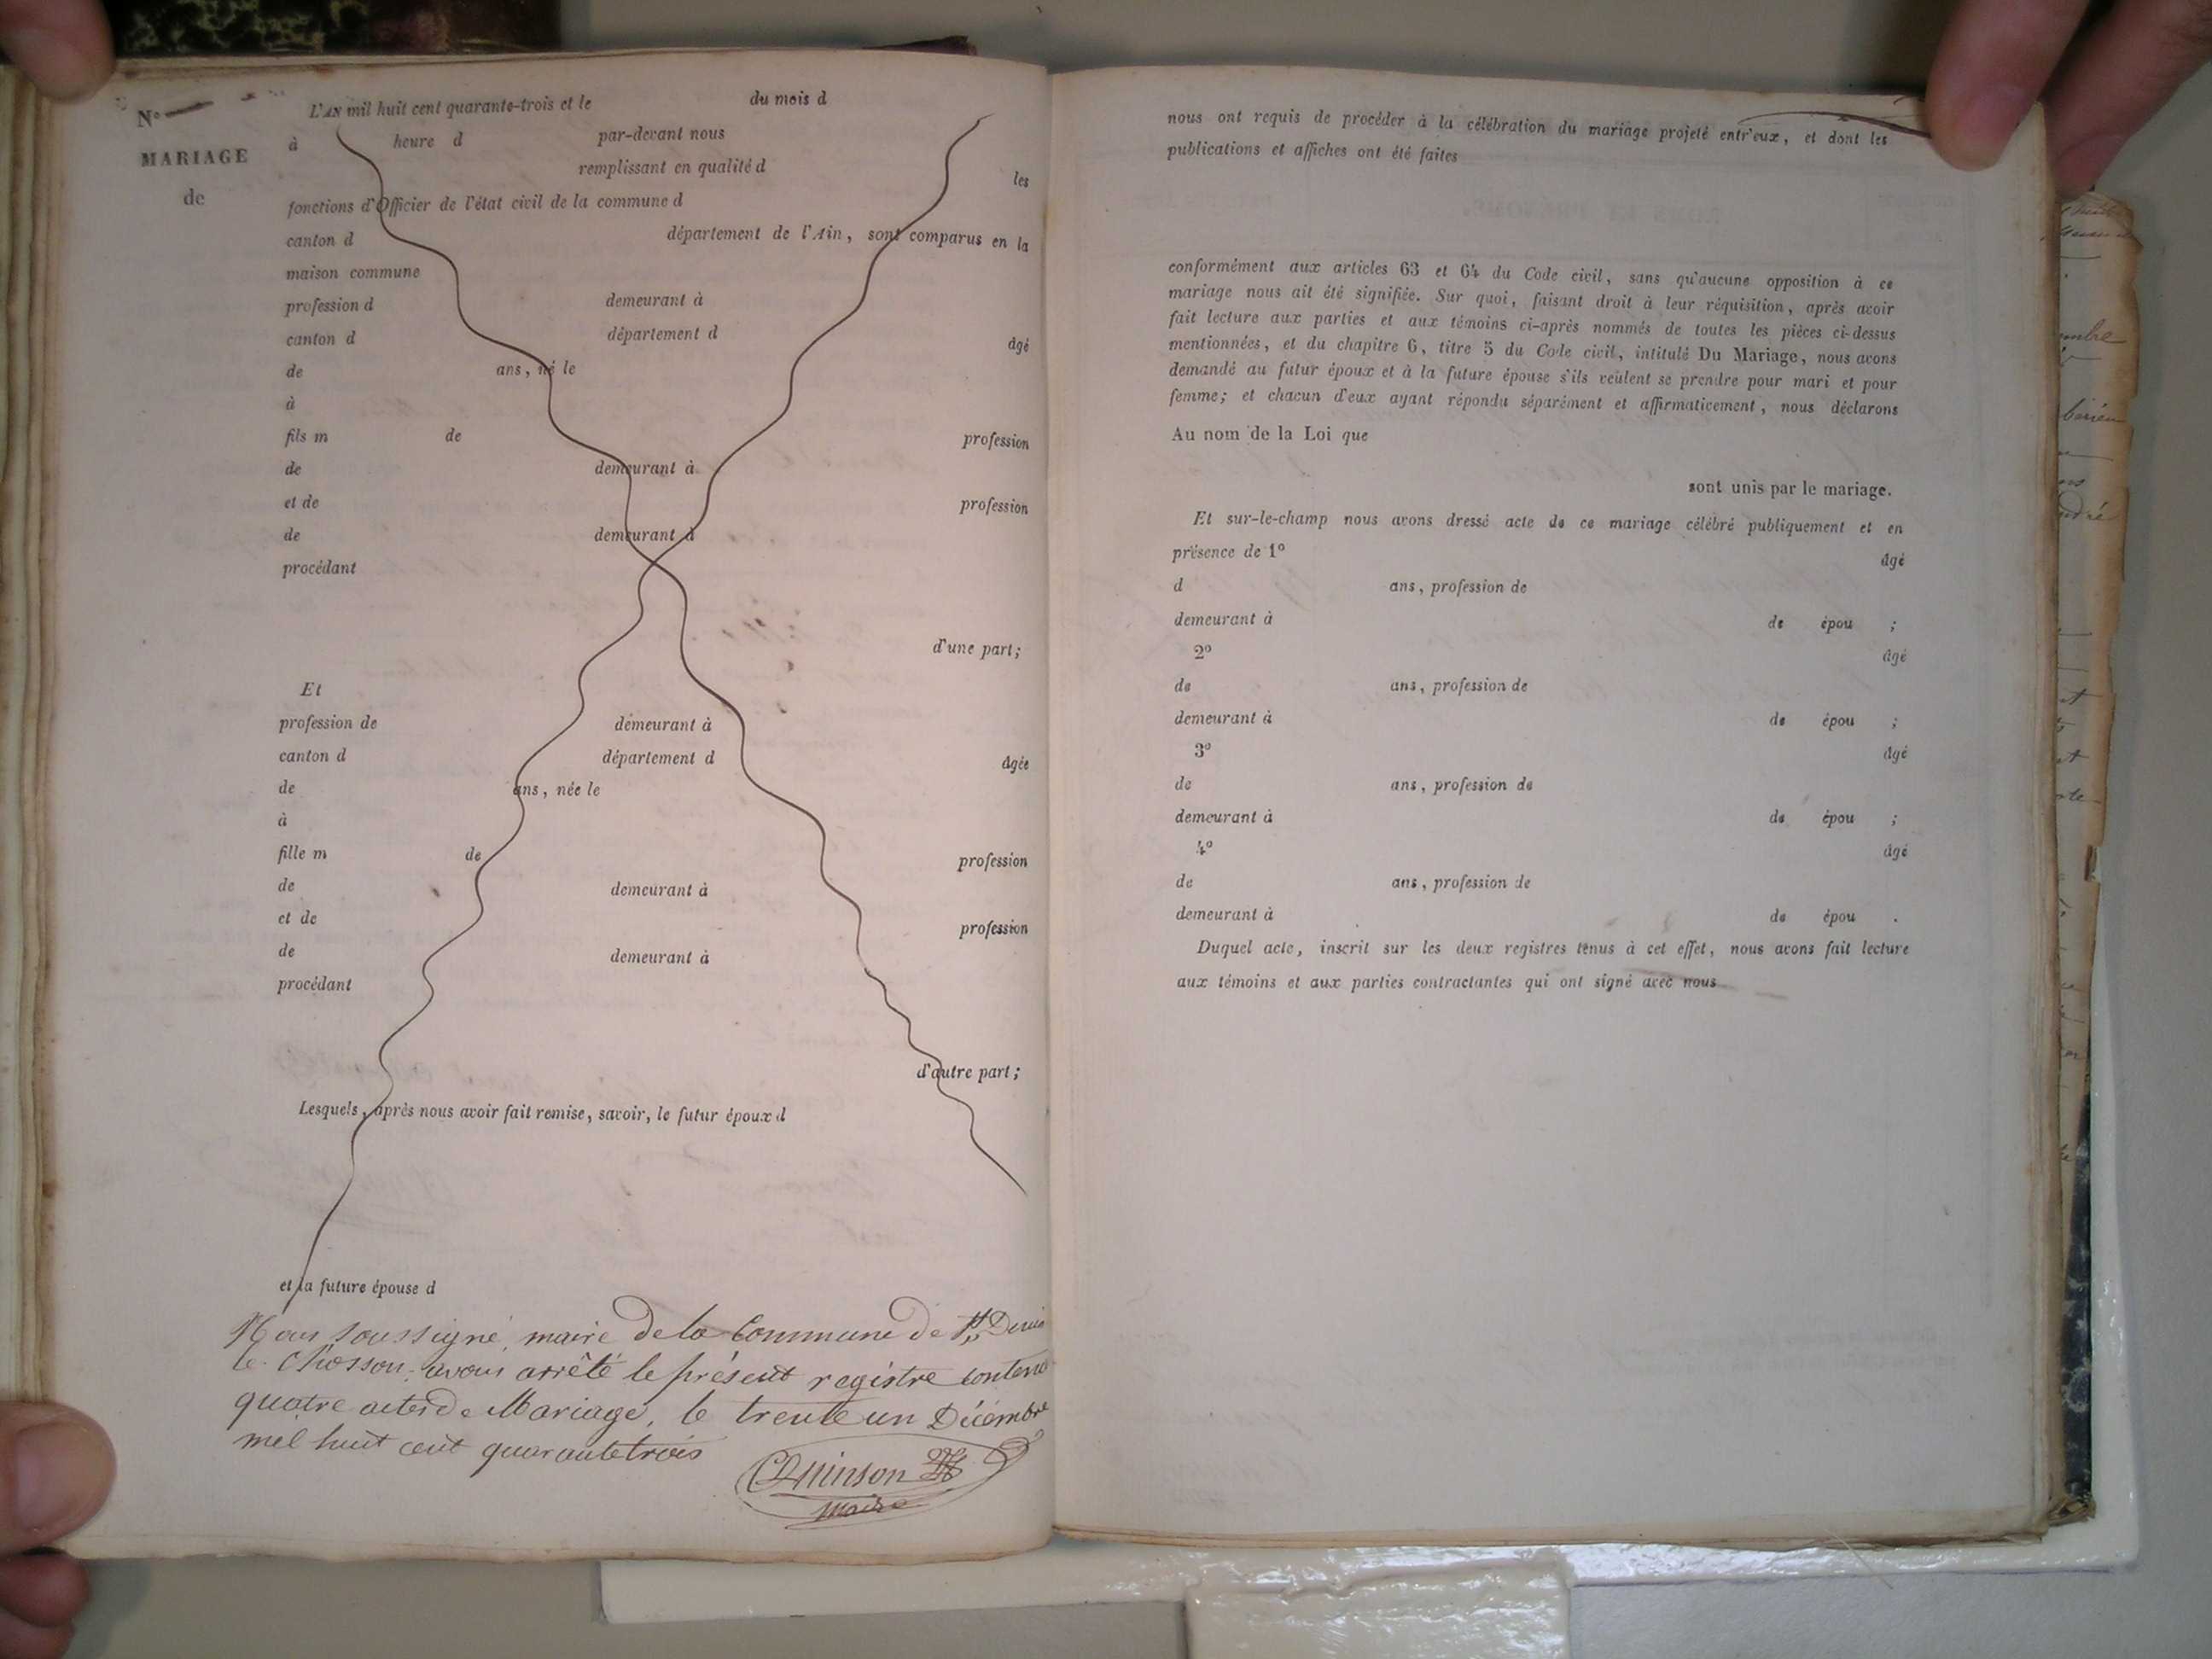 N°
MARIAGE
de
L'AN mil huit cent quarante-trois et le du mois d
à heure d par-devant nous
remplissant en qualité d les
fonctions d'Officier de l'état civil de la commune d
canton d département de l'Ain, sont comparus en la
maison commune
profession d demeurant à
canton d département d âgé
de ans, né le
à
fils m de profession
de demeurant à
et de profession
de demeurant à
procédant
d'une part;
Et
profession de demeurant à
canton d département d âgée
de ans, née le
à
fille m de profession
de demeurant à
et de profession
de demeurant à
procédant
d'autre part;
Lesquels, après nous avoir fait remise, savoir, le futur époux d
et la future épouse d
Nous soussigné, maire de la Commune de St Denis
le Chosson, avons arrêté le présent registre contena
quatre actes de Mariage, le trente un Décembre
mil huit cent quarante trois
Quinson
maire
nous ont requis de procéder à la célébration du mariage projeté entr'eux, et dont les
publications et affiches ont été faites
conformément aux articles 63 et 64 du Code civil, sans qu'aucune opposition à ce
mariage nous ait été signifiée. Sur quoi, faisant droit à leur réquisition, après avoir
fait lecture aux parties et aux témoins ci-après nommés de toutes les pièces ci-dessus
mentionnées, et du chapitre 6, titre 5 du Code civil, intitulé Du Mariage, nous avons
demandé au futur époux et à la future épouse s'ils veulent se prendre pour mari et pour
femme; et chacun d'eux ayant répondu séparément et affirmativement, nous déclarons
Au nom de la Loi que
sont unis par le mariage.
Et sur-le-champ nous avons dressé acte de ce mariage célébré publiquement et en
présence de 1° âgé
d ans, profession de
demeurant à de épou ;
2° âgé
de ans, profession de
demeurant à de épou ;
3° âgé
de ans, profession de
demeurant à de épou ;
4° âgé
de ans, profession de
demeurant à de épou .
Duquel acte, inscrit sur les deux registres tenus à cet effet, nous avons fait lecture
aux témoins et aux parties contractantes qui ont signé avec nous